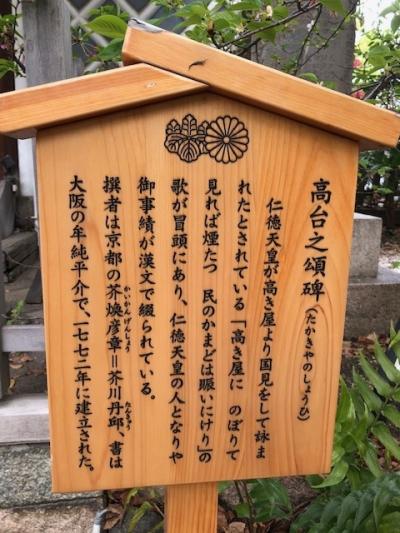 高台之頌碑(たかきやのしょうひ)
仁徳天皇が高き屋より国見をして詠ま
れたとされている「高き屋に のぼりて
見れば煙たつ 民のかまどは賑いにけり」の
歌が冒頭にあり、仁徳天皇の人となりや
御事績が漢文で綴られている。
撰者は京都の芥煥彦章=芥川丹邱、書は
かいかんげんしょう
たんきゅう
大阪の牟純平介で、一七七二年に建立された。